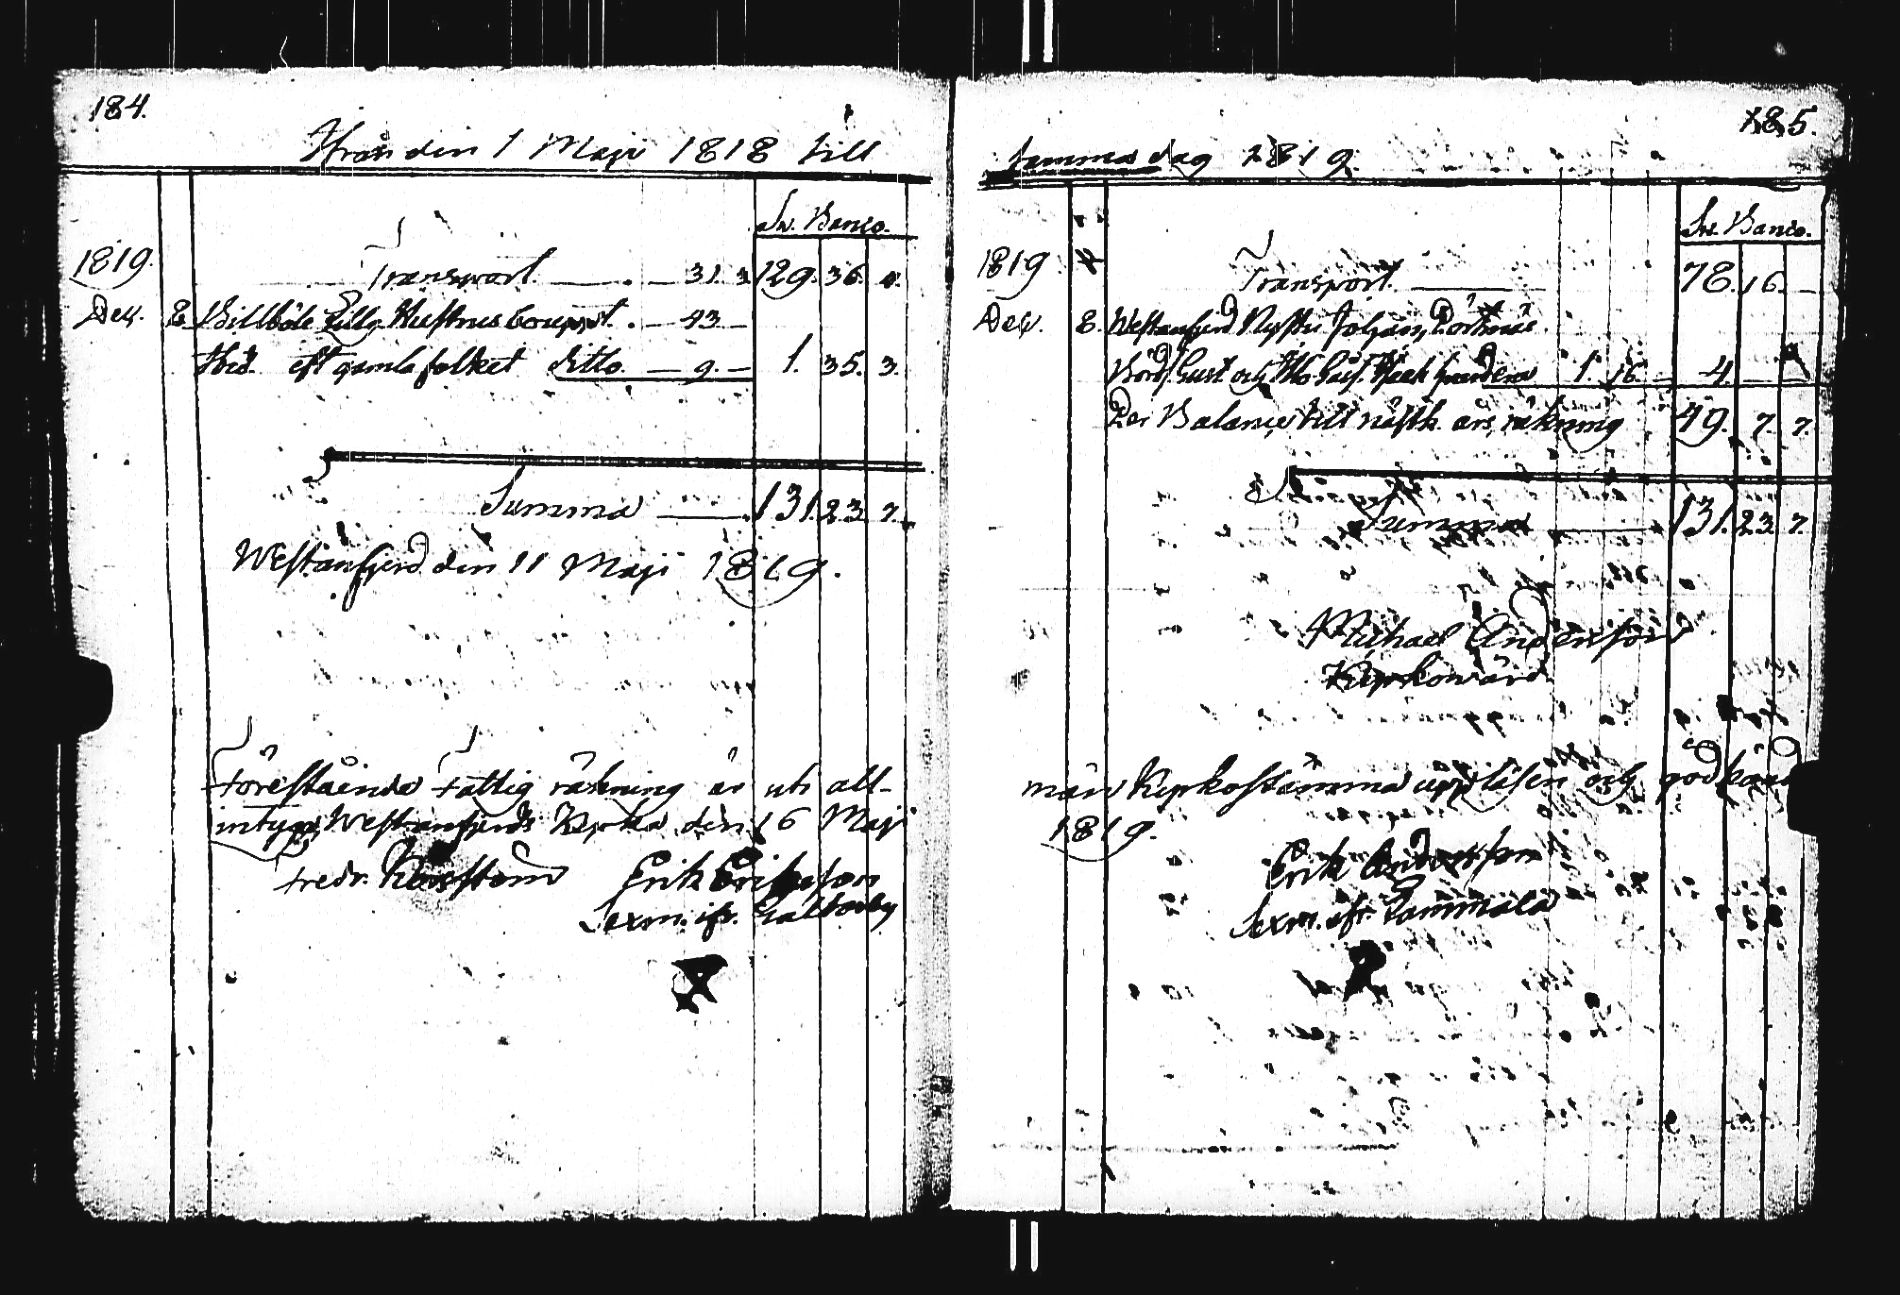 184.
Ifrån den 1 Maji 1818 till
Sw. Banco.
1819. Transport — 31. 3 129. 36. 4.
Dec. 8. Billböle Hustrus bouppt. — 43 —
Ibid. eft gamla folket ditto — 9. — 1. 35. 3.
Summa — 131. 23. 7.
Westanfjerd den 11 Maji 1819.
Förestående Fattig räkning är uti all-
Westanfjerds Kyrka den 16 Maji
Fredr. Erik Eriksson
Sexm. ifr. Galtarby
185.
samma dag 1819.
Sw. Banco.
1819 Transport — 78. 16. —
Dec. 8. Westanfjerd Johan
Gust och 1. 16 — 4. —
Per Balance till nästk. års räkning 49. 7. 7.
Summa — 131. 23. 7.
Michael Andersson
Kyrkowärd
män Kyrkostämma uppläsen och godkänd
1819.
Erik Andersson
Sexm. ifr. Tammala